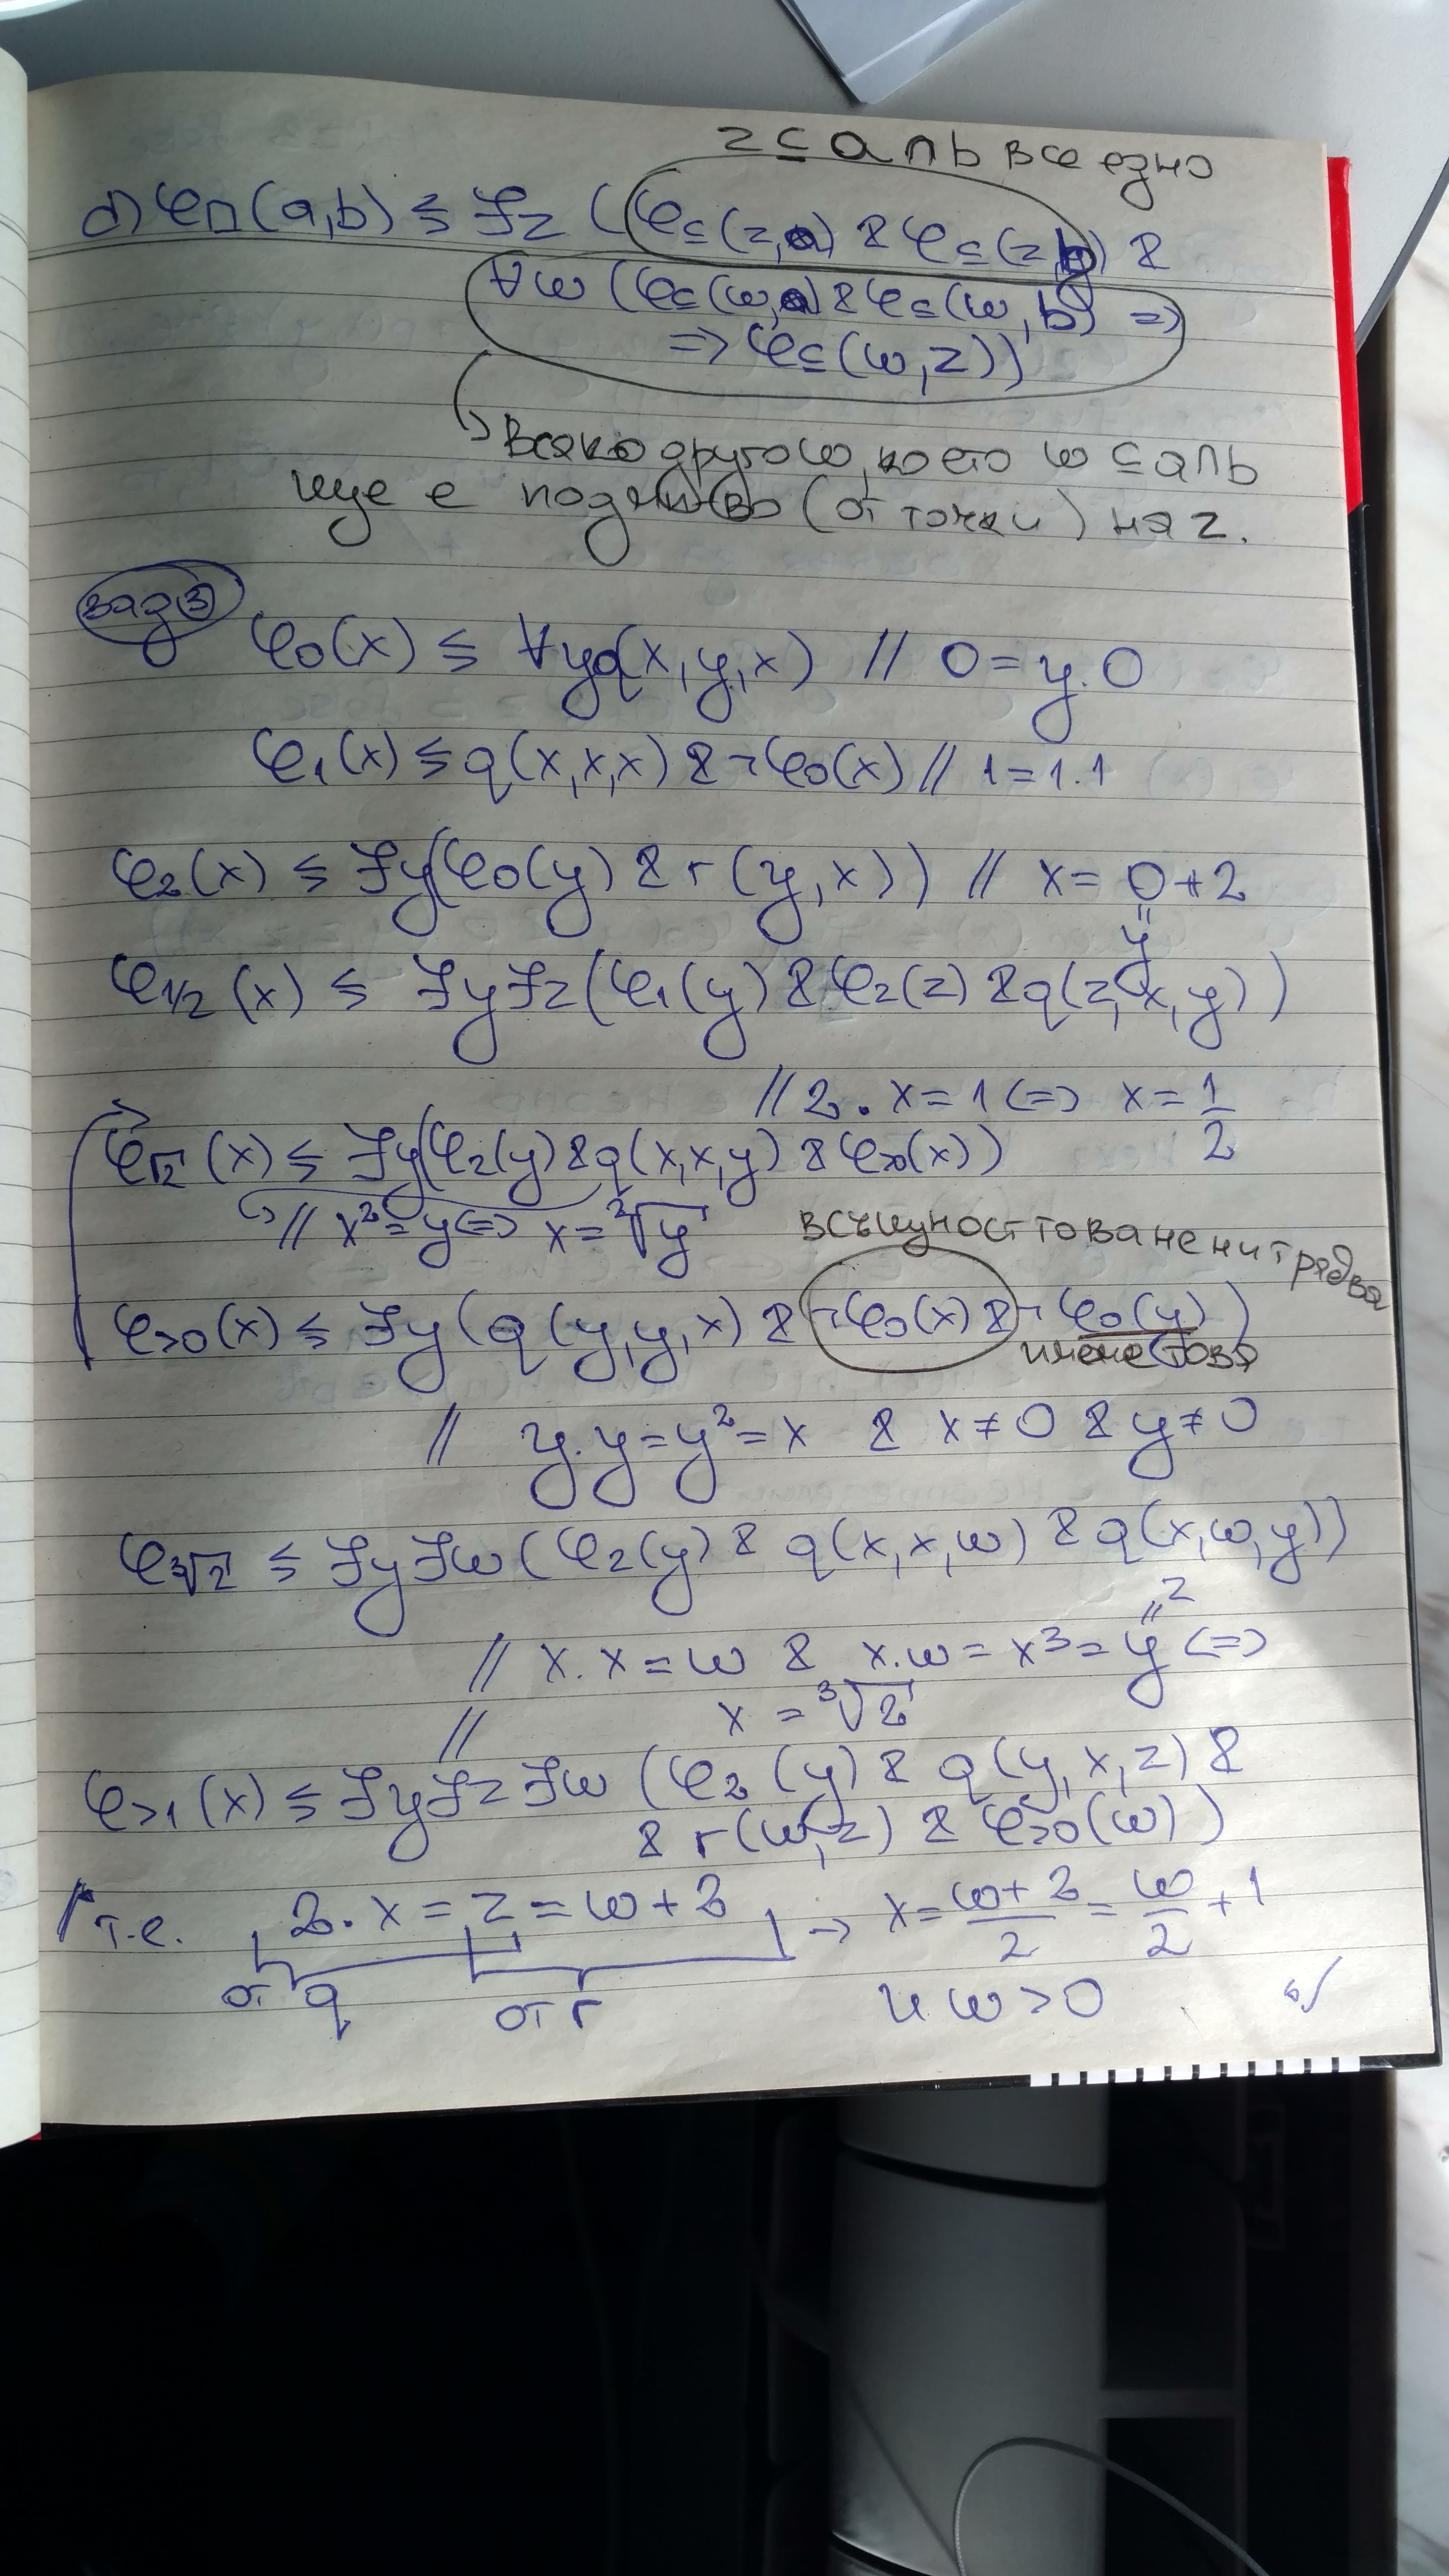 z ⊆ a ∩ b все едно
d) φ⊓(a,b) ≤ ∃z (φ⊆(z,a) & φ⊆(z,b) &
∀w (φ⊆(w,a) & φ⊆(w,b) =>
=> φ⊆(w,z))
Всяко друго w, което w ⊆ a∩b
ще е (от точки) на z.
зад 3
φ₀(x) ≤ ∀y q(x,y,x) // 0 = y.0
φ₁(x) ≤ q(x,x,x) & ¬φ₀(x) // 1 = 1.1
φ₂(x) ≤ ∃y(φ₀(y) & r(y,x)) // x = 0+2
"
y
φ1/2(x) ≤ ∃y∃z(φ₁(y) & φ₂(z) & q(z,x,y))
// 2.x = 1 <=> x = 1/2
φ√2(x) ≤ ∃y(φ₂(y) & q(x,x,y) & φ>0(x))
// x² = y <=> x = ²√y
всъщност това не ни трябва
φ>0(x) ≤ ∃y(q(y,y,x) & ¬φ₀(x) & ¬φ₀(y))
това
// y.y = y² = x & x ≠ 0 & y ≠ 0
φ³√2 ≤ ∃y∃w(φ₂(y) & q(x,x,w) & q(x,w,y))
" 2
// x.x = w & x.w = x³ = y <=>
// x = ³√2
φ>1(x) ≤ ∃y∃z∃w (φ₂(y) & q(y,x,z) &
& r(w,z) & φ>0(w))
// т.е. 2.x = z = w+2 → x = (w+2)/2 = w/2 + 1
от q от r и w > 0